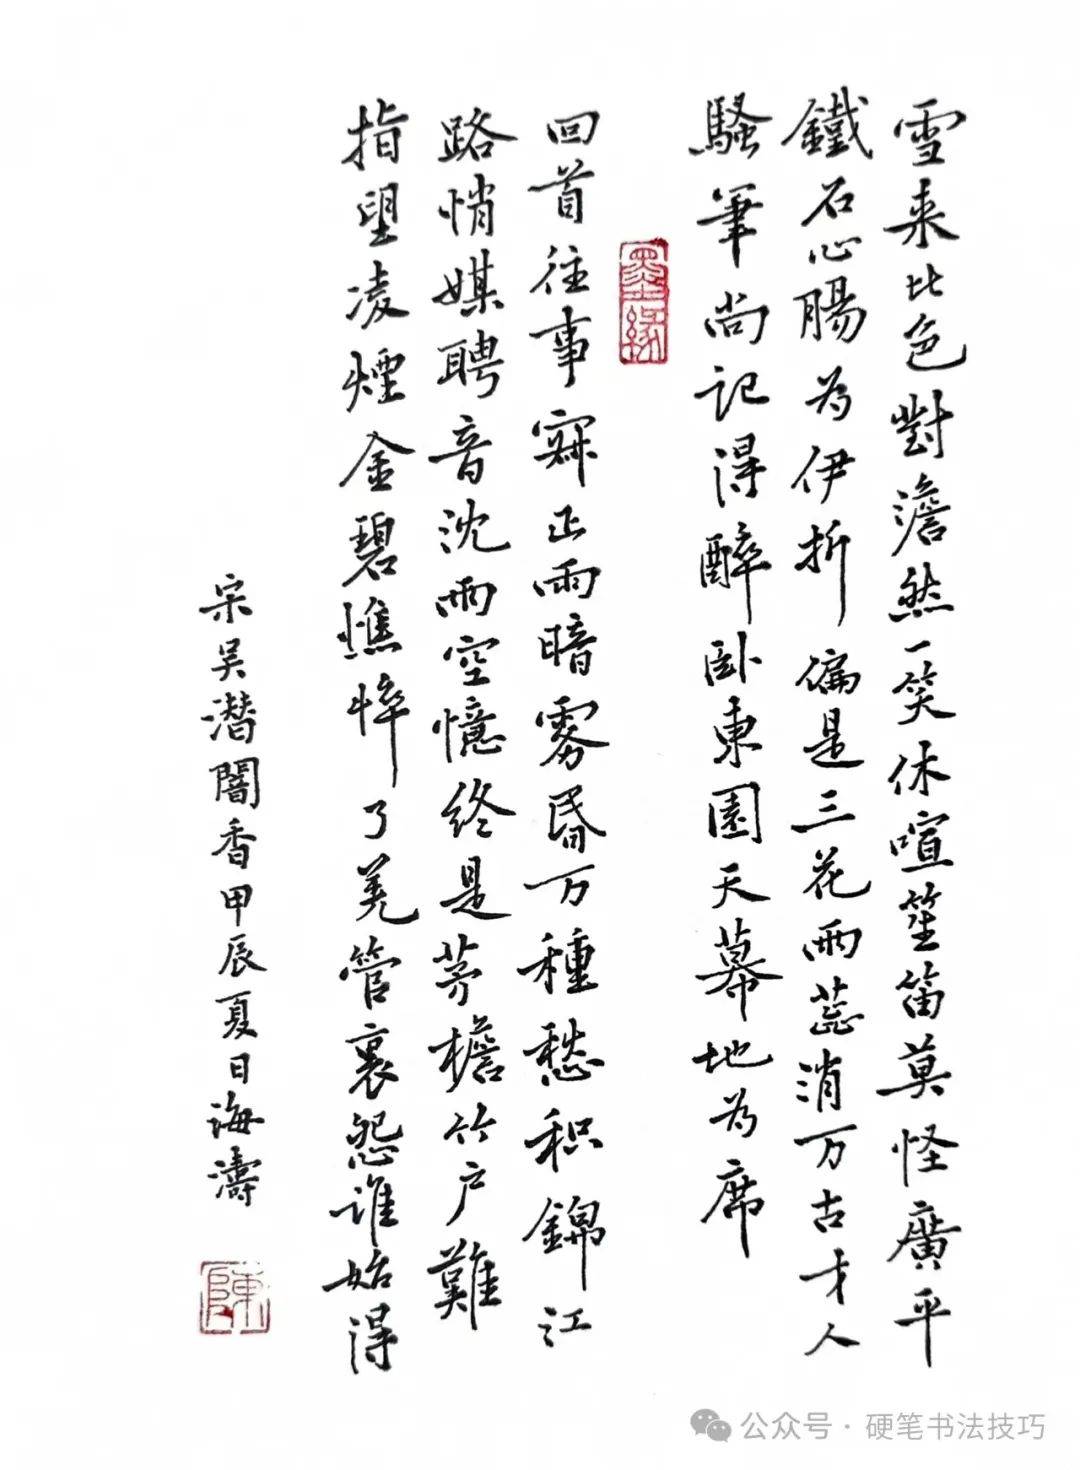 雪来比色對澹然一笑休喧笙笛莫怪廣平
鐵石心腸為伊折偏是三花兩蕊消万古才人
騷筆尚记得醉卧東園天幕地為席
墨缘
回首往事寂正雨暗雾昏万種愁积錦江
路悄媒聘音沈兩空憶终是茅檐竹户難
指望凌煙金碧憔悴了羌管裏怨谁始得
宋吴潜闇香甲辰夏日海濤
陳
公众号·硬笔书法技巧